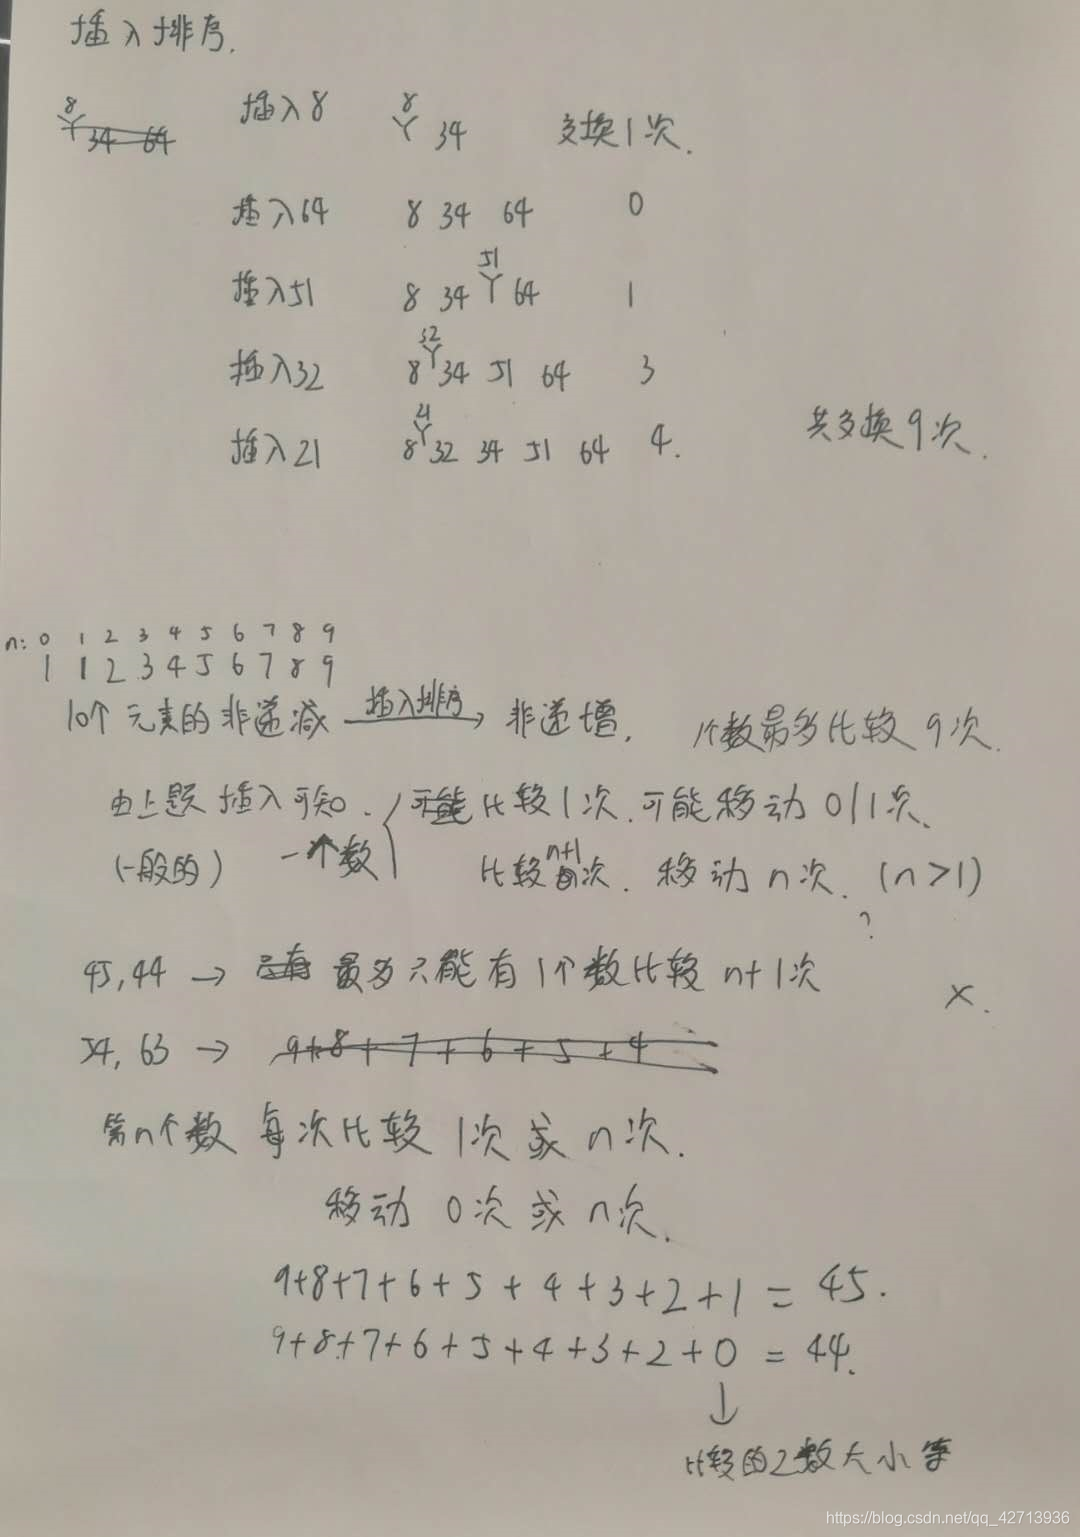 插入排序.
8
34 64 插入8 8 34 交换1次.
插入64 8 34 64 0
51
插入51 8 34 64 1
32
插入32 8 34 51 64 3
21
插入21 8 32 34 51 64 4. 共交换9次.
n: 0 1 2 3 4 5 6 7 8 9
1 1 2 3 4 5 6 7 8 9
10个元素的非递减 插入排序 非递增. 1个数最多比较9次.
由上题插入可知. 可能比较1次.可能移动0|1次.
(一般的) 一个数 比较n+1次. 移动n次. (n>1)
?
45,44 → 最多只能有1个数比较n+1次 ×.
54,63 → 9+8+7+6+5+4
第n个数 每次比较1次或n次.
移动0次或n次.
9+8+7+6+5+4+3+2+1=45.
9+8+7+6+5+4+3+2+0=44.
↓
比较的2数大小等
https://blog.csdn.net/qq_42713936